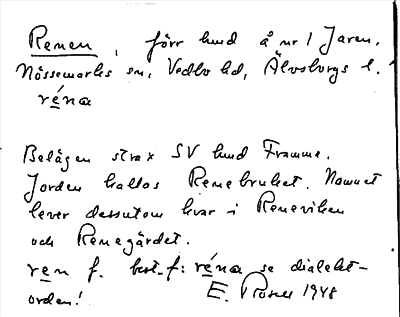 Renen, förr lund å nr 1 Jaren,
Nössemarks sn, Vedbo hd, Älvsborgs l.
réna
Belägen strax SV lund Framme.
Jorden kallas Renebruket. Namnet
lever dessutom kvar i Reneviken
och Renegärdet.
ren f. best. f: réna se dialekt-
orden!
E. Rosell 1948